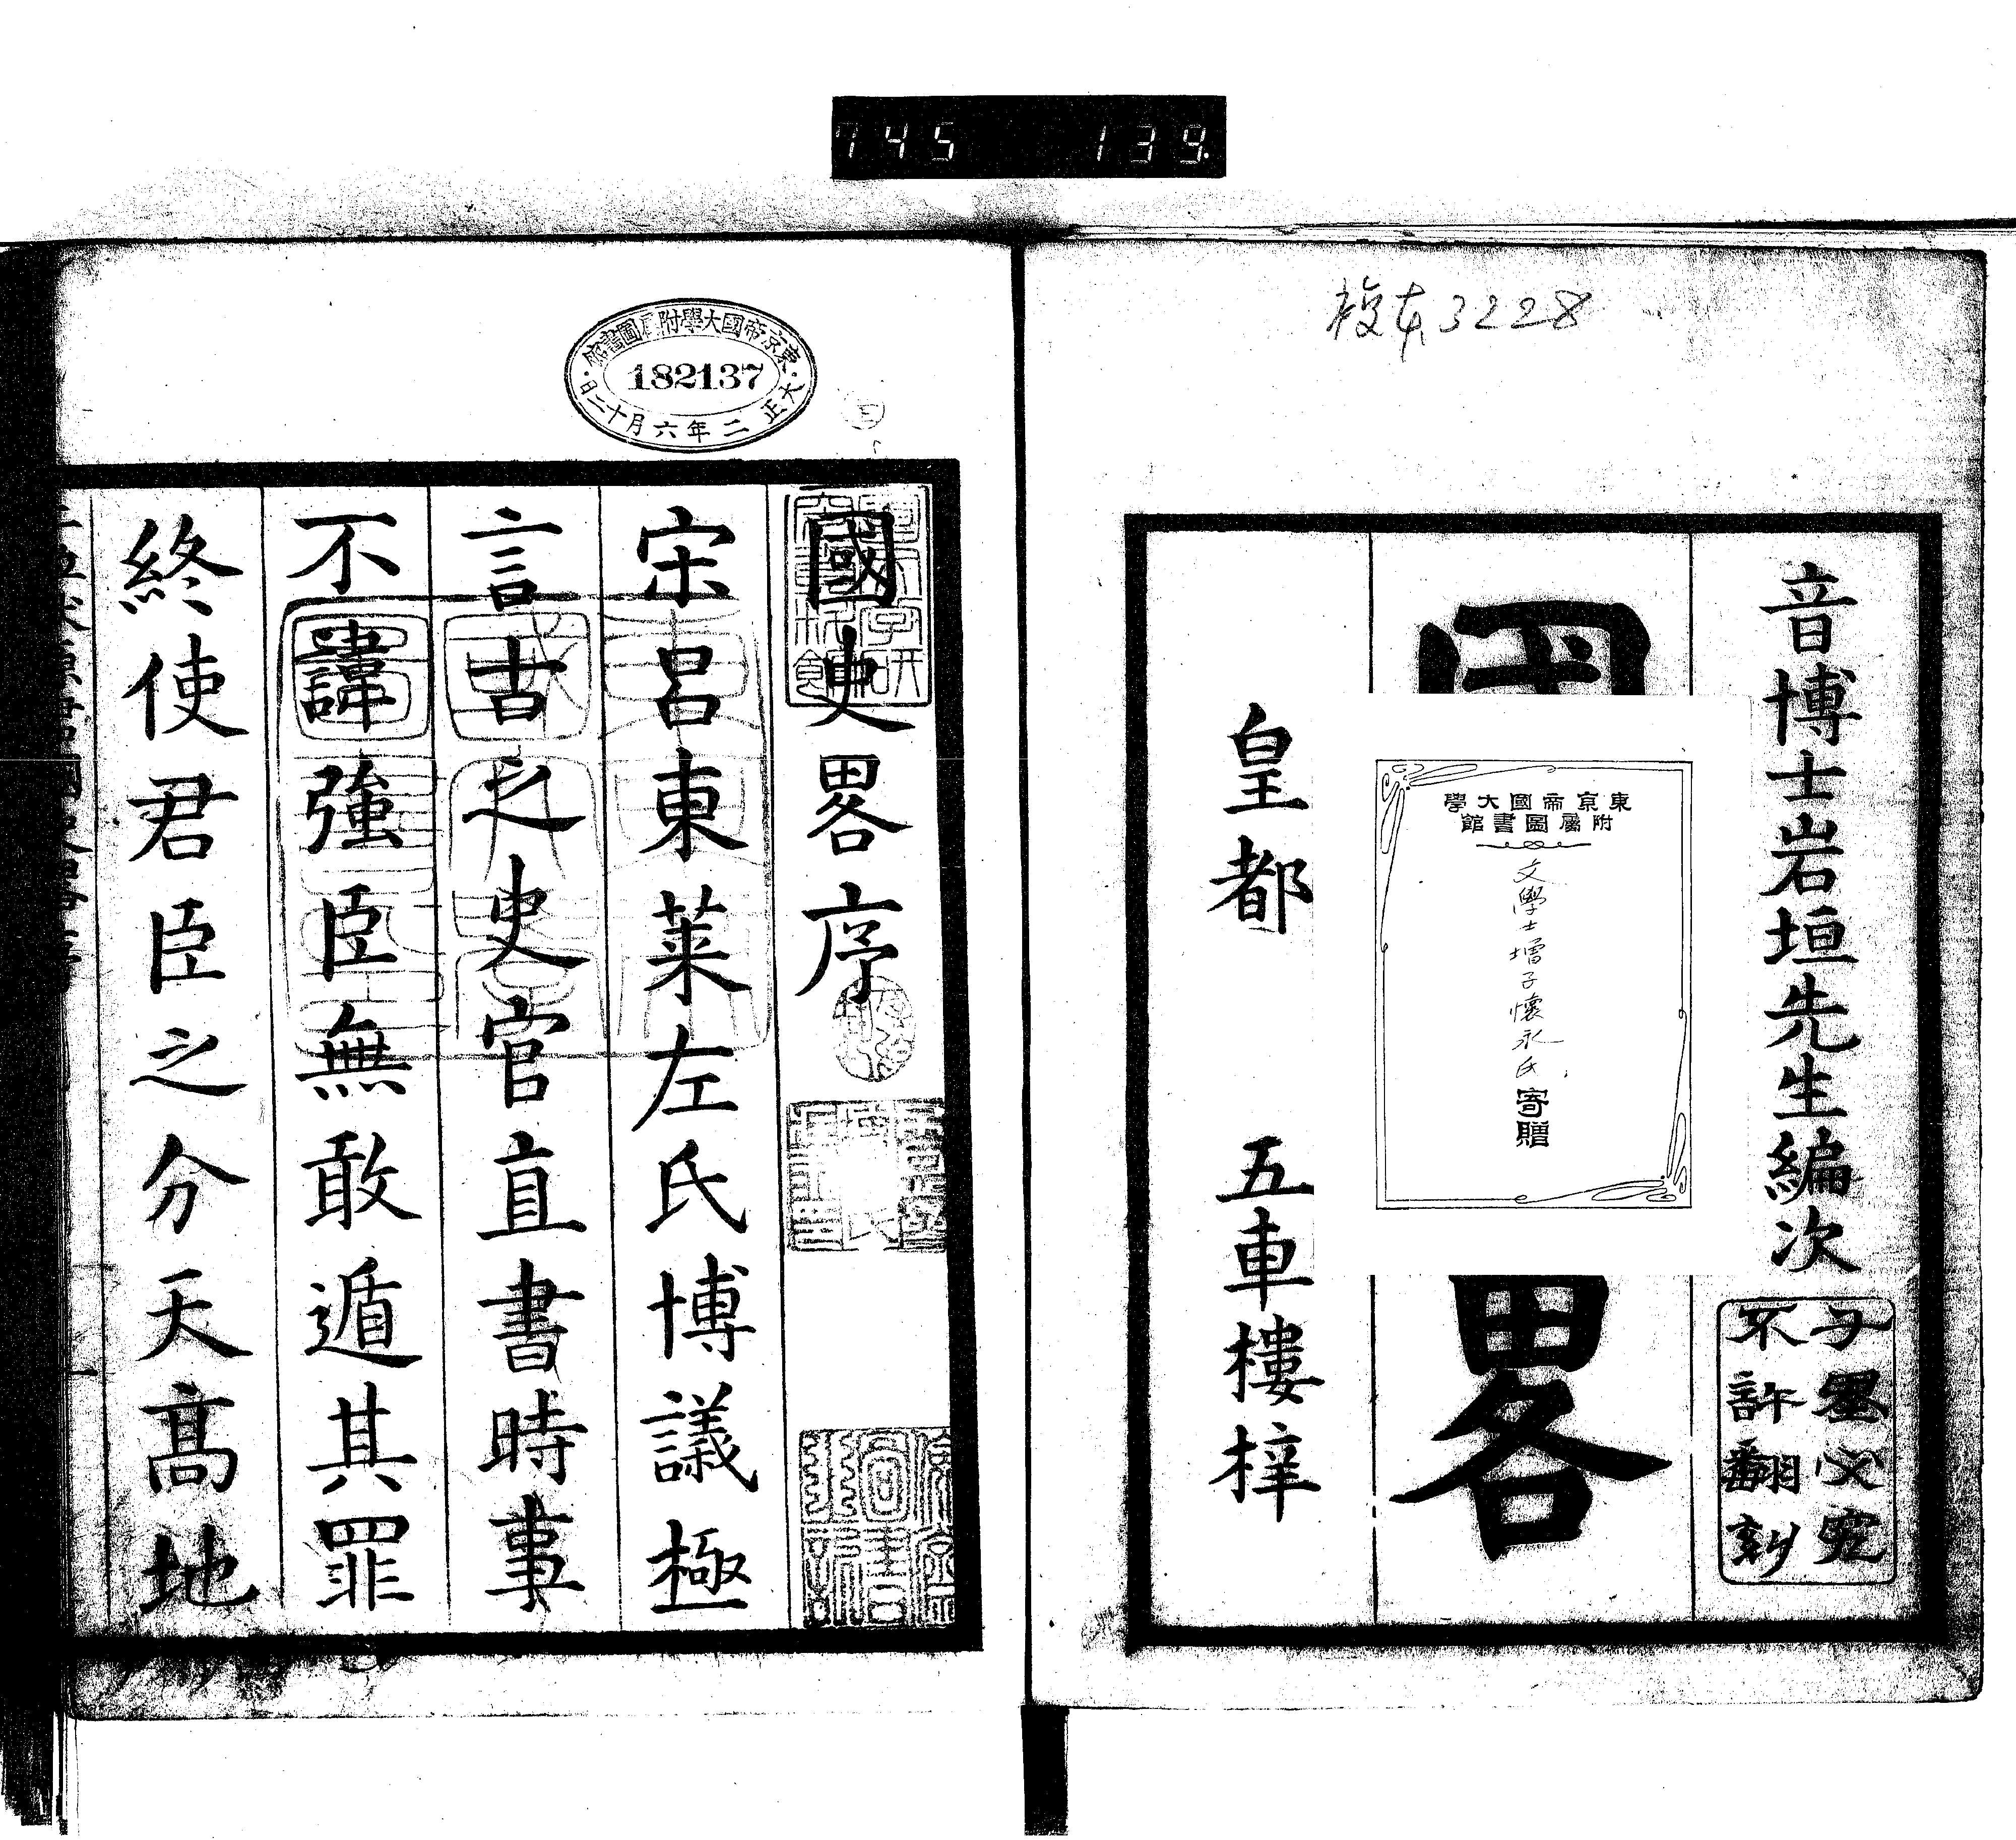 745 139.
複本3228
音博士岩垣先生編次
不許翻刻
畧
東京帝國大學
附屬圖書館
文學士増子懷永氏寄贈
皇都 五車樓梓
東京帝國大學附屬圖書館
182137
大正二年六月十二日
國史畧序
宋呂東萊左氏博議極
言古之史官直書時事
不諱強臣無敢遁其罪
終使君臣之分天高地